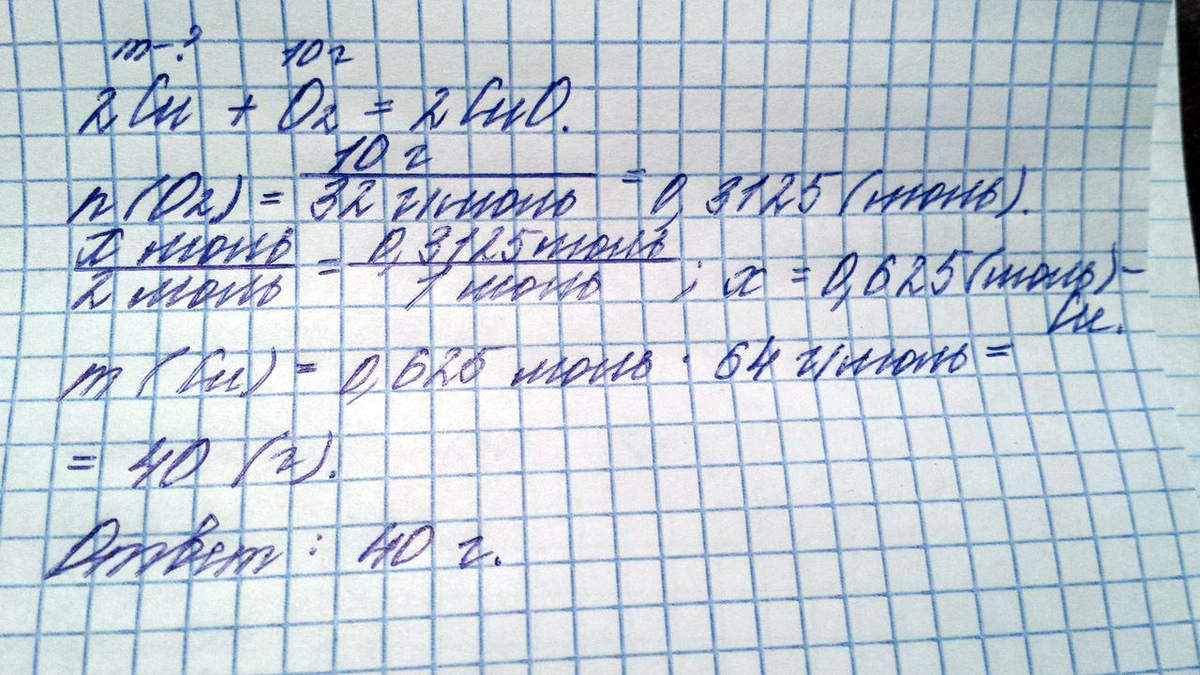 m-? 10 г
2Cu + O₂ = 2CuO.
n(O₂) = 10 г / 32 г/моль = 0,3125 (моль).
x моль / 2 моль = 0,3125 моль / 1 моль ; x = 0,625 (моль) -
Cu.
m (Cu) = 0,625 моль · 64 г/моль =
= 40 (г).
Ответ : 40 г.